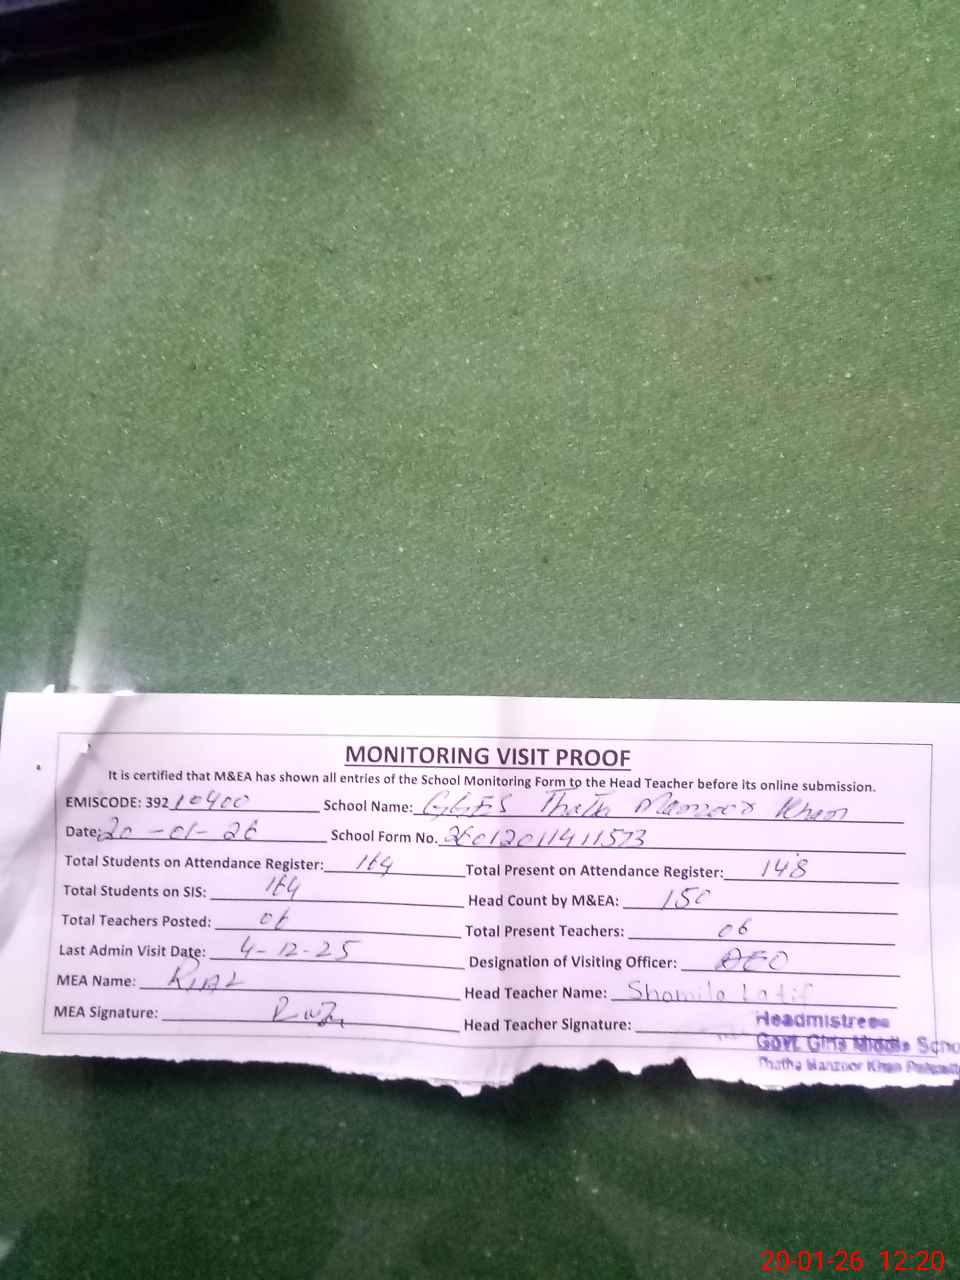 MONITORING VISIT PROOF
It is certified that M&EA has shown all entries of the School Monitoring Form to the Head Teacher before its online submission.
EMISCODE: 392 10400 School Name: GGES Thatha Manzoor Khan
Date: 20-01-26 School Form No. 26012011411573
Total Students on Attendance Register: 164 Total Present on Attendance Register: 148
Total Students on SIS: 164 Head Count by M&EA: 150
Total Teachers Posted: 06 Total Present Teachers: 06
Last Admin Visit Date: 4-12-25 Designation of Visiting Officer: AEO
MEA Name: Riaz Head Teacher Name: Shamila Latif
MEA Signature: Head Teacher Signature:
Headmistress
Govt. Girls Middle Scho
Thatha Manzoor Khan
20-01-26 12:20